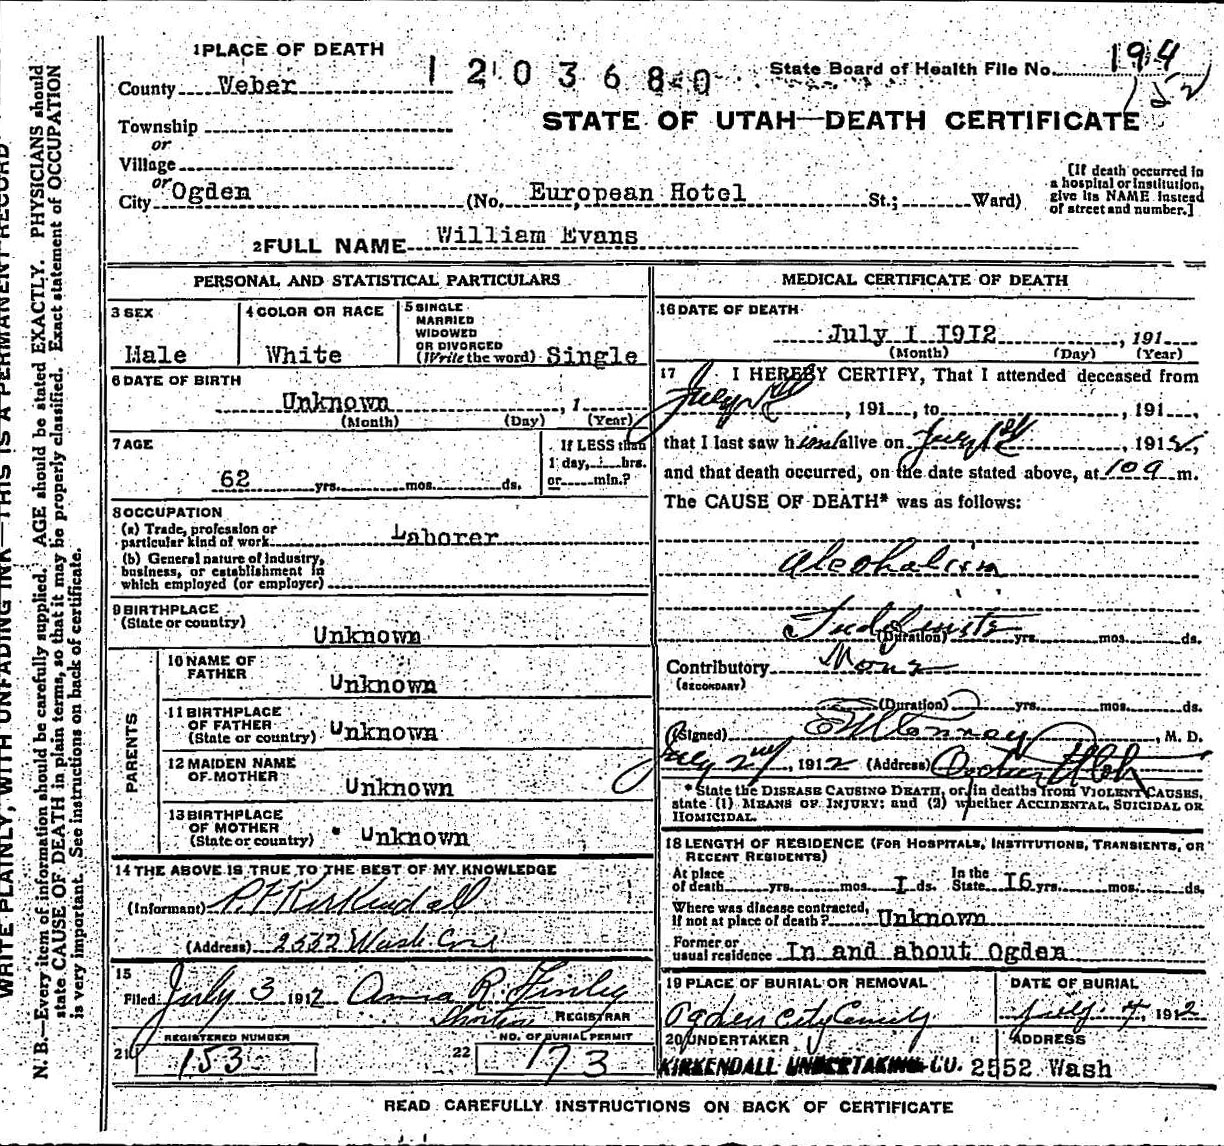 1 PLACE OF DEATH
County Weber
1203680
State Board of Health File No. 194
152
Township
or
Village
or
City Ogden (No. European Hotel St.; Ward)
STATE OF UTAH—DEATH CERTIFICATE
[If death occurred in a hospital or institution, give its NAME instead of street and number.]
2 FULL NAME William Evans
PERSONAL AND STATISTICAL PARTICULARS
3 SEX
Male
4 COLOR OR RACE
White
5 SINGLE
MARRIED
WIDOWED
OR DIVORCED
(Write the word) Single
6 DATE OF BIRTH
Unknown , 1
(Month) (Day) (Year)
7 AGE
62 yrs. mos. ds.
If LESS than
1 day, hrs.
or min.?
8 OCCUPATION
(a) Trade, profession or
particular kind of work Laborer
(b) General nature of industry,
business, or establishment in
which employed (or employer)
9 BIRTHPLACE
(State or country)
Unknown
PARENTS
10 NAME OF
FATHER
Unknown
11 BIRTHPLACE
OF FATHER
(State or country) Unknown
12 MAIDEN NAME
OF MOTHER
Unknown
13 BIRTHPLACE
OF MOTHER
(State or country) Unknown
14 THE ABOVE IS TRUE TO THE BEST OF MY KNOWLEDGE
(Informant) P F Kirkendall
(Address) 2552 Wash
15
Filed July 3 1912 Anna R. Finley
REGISTRAR
REGISTERED NUMBER
21 153
NO. OF BURIAL PERMIT
22 173
MEDICAL CERTIFICATE OF DEATH
16 DATE OF DEATH
July 1 1912 , 191
(Month) (Day) (Year)
17 I HEREBY CERTIFY, That I attended deceased from
July 1st , 191 , to , 191 ,
that I last saw him alive on July 1st , 1912,
and that death occurred, on the date stated above, at 10 a m.
The CAUSE OF DEATH* was as follows:
Alcoholism
Indefinite
(Duration) yrs. mos. ds.
Contributory None
(SECONDARY)
(Duration) yrs. mos. ds.
(Signed) , M. D.
July 2nd, 1912 (Address) Ogden Utah
* State the DISEASE CAUSING DEATH, or, in deaths from VIOLENT CAUSES,
state (1) MEANS OF INJURY; and (2) whether ACCIDENTAL, SUICIDAL OR
HOMICIDAL.
18 LENGTH OF RESIDENCE (FOR HOSPITALS, INSTITUTIONS, TRANSIENTS, OR
RECENT RESIDENTS)
At place
of death yrs. mos. 1 ds. In the State 16 yrs. mos. ds.
Where was disease contracted,
if not at place of death? Unknown
Former or
usual residence In and about Ogden
19 PLACE OF BURIAL OR REMOVAL
Ogden City
DATE OF BURIAL
July 4, 1912
20 UNDERTAKER
KIRKENDALL UNDERTAKING CO.
ADDRESS
2552 Wash
READ CAREFULLY INSTRUCTIONS ON BACK OF CERTIFICATE
WRITE PLAINLY, WITH UNFADING INK—THIS IS A PERMANENT RECORD
N. B.—Every item of information should be carefully supplied. AGE should be stated EXACTLY. PHYSICIANS should
state CAUSE OF DEATH in plain terms, so that it may be properly classified. Exact statement of OCCUPATION
is very important. See instructions on back of certificate.